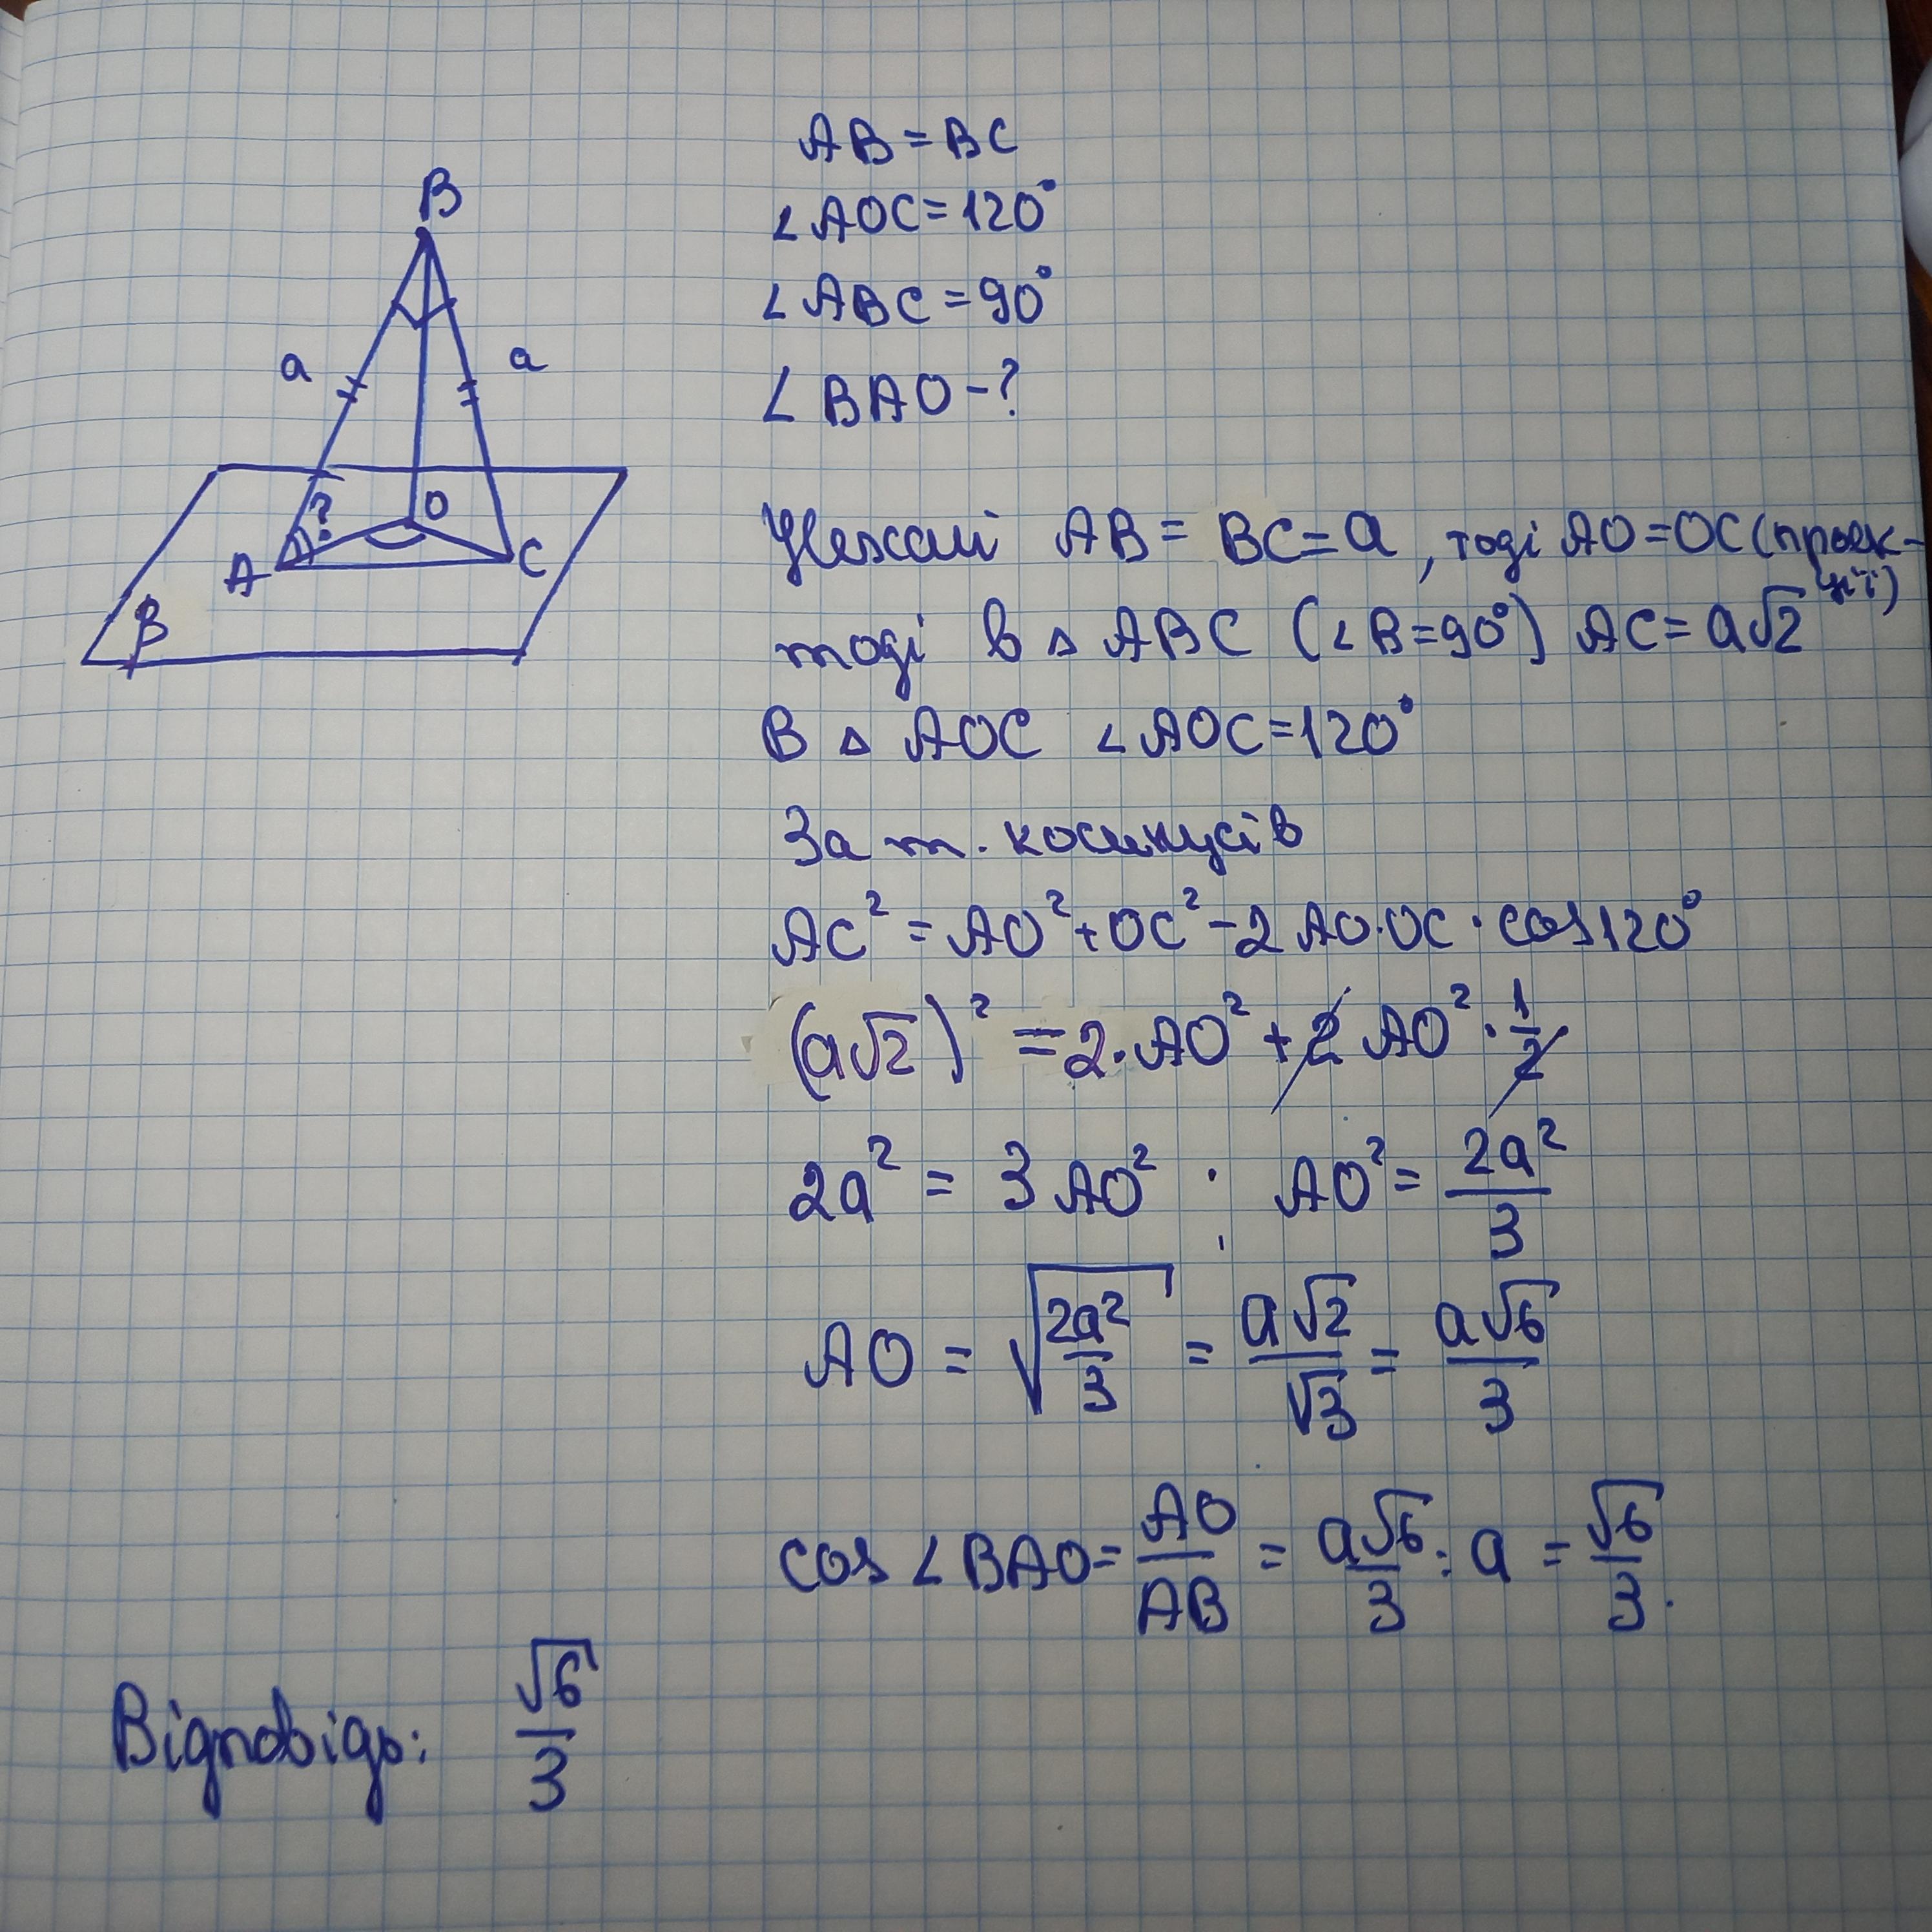 B
a
a
?
O
A
C
β
AB = BC
∠AOC = 120°
∠ABC = 90°
∠BAO - ?
Нехай AB = BC = a, тоді AO = OC (проек-
ції)
тоді в △ ABC (∠B = 90°) AC = a√2
В △ AOC ∠AOC = 120°
За т. косинусів
AC² = AO² + OC² - 2 AO · OC · cos 120°
(a√2)² = 2 · AO² + 2 AO² · 1/2
2a² = 3 AO² ; AO² = 2a²/3
AO = √(2a²/3) = a√2/√3 = a√6/3
cos ∠BAO = AO/AB = a√6/3 : a = √6/3.
Відповідь: √6/3